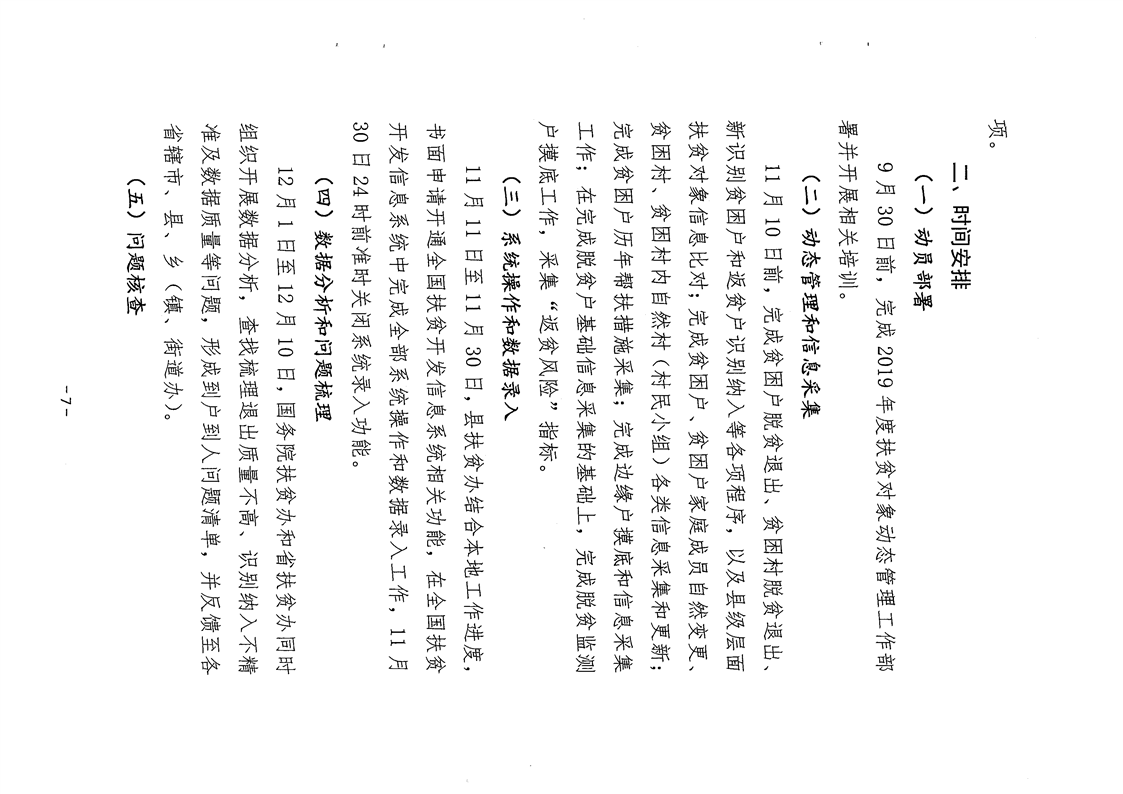 项。
二、时间安排
（一）动员部署
9月30日前，完成2019年度扶贫对象动态管理工作部
署并开展相关培训。
（二）动态管理和信息采集
11月10日前，完成贫困户脱贫退出、贫困村脱贫退出、
新识别贫困户和返贫户识别纳入等各项程序，以及县级层面
扶贫对象信息比对；完成贫困户、贫困户家庭成员自然变更、
贫困村、贫困村内自然村（村民小组）各类信息采集和更新；
完成贫困户历年帮扶措施采集；完成边缘户摸底和信息采集
工作；在完成脱贫户基础信息采集的基础上，完成脱贫监测
户摸底工作，采集“返贫风险”指标。
（三）系统操作和数据录入
11月11日至11月30日，县扶贫办结合本地工作进度，
书面申请开通全国扶贫开发信息系统相关功能，在全国扶贫
开发信息系统中完成全部系统操作和数据录入工作，11月
30日24时前准时关闭系统录入功能。
（四）数据分析和问题梳理
12月1日至12月10日，国务院扶贫办和省扶贫办同时
组织开展数据分析，查找梳理退出质量不高、识别纳入不精
准及数据质量等问题，形成到户到人问题清单，并反馈至各
省辖市、县、乡（镇、街道办）。
（五）问题核查
-7-